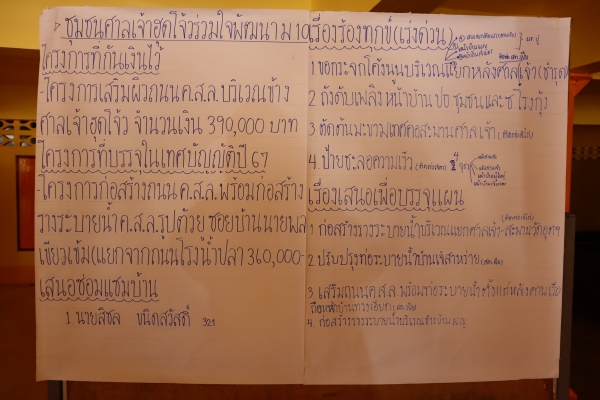 ชุมชนศาลเจ้าฮุดโจ้วร่วมใจพัฒนา ม.10
โครงการที่กันเงินไว้
-โครงการเสริมผิวถนน ค.ส.ล. บริเวณข้าง
ศาลเจ้าฮุดโจ้ว จำนวนเงิน 390,000 บาท
โครงการที่บรรจุในเทศบัญญัติปี 67
-โครงการก่อสร้างถนน ค.ส.ล. พร้อมก่อสร้าง
รางระบายน้ำ ค.ส.ล. รูปตัววี ซอยบ้านนายพล
เขียวเข้ม (แยกจากถนนโรงน้ำปลา 360,000.-
เสนอซ่อมแซมบ้าน
1. นายสีชล ขนิดสวัสดิ์ 321
เรื่องร้องทุกข์ (เร่งด่วน)
1. ขอกระจกโค้งนูนบริเวณแยกหลังศาลเจ้า (ชำรุด)
2. ถังดับเพลิง หน้าบ้าน ปธ ชุมชน และ ซ โรงกุ้ง
3. ตัดต้นมะขามเทศคอสะพานศาลเจ้า
4. ป้ายชะลอความเร็ว 4 จุด
เรื่องเสนอเพื่อบรรจุแผน
1. ก่อสร้างรางระบายน้ำบริเวณแยกศาลเจ้า-สะพาน
2. ปรับปรุงท่อระบายน้ำบ้านเจ๊สาหร่าย
3. เสริมถนน ค.ส.ล. พร้อมท่อระบายน้ำตั้งแต่หลัง
ถึงหน้าบ้าน
4. ก่อสร้างรางระบายน้ำบริเวณข้างบ้าน